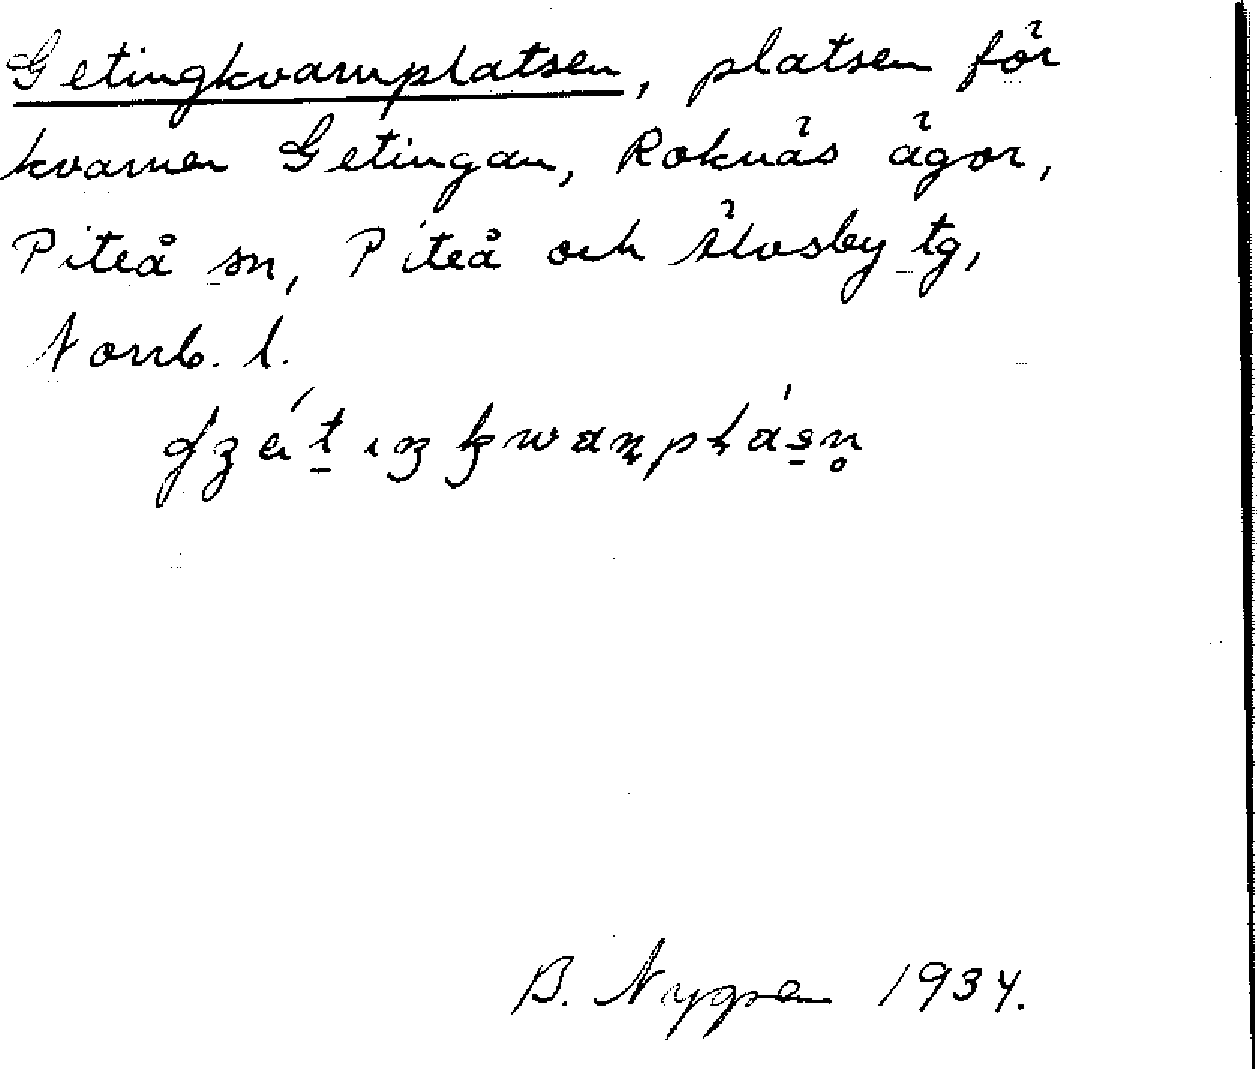 Getingkvarnplatsen, platsen för
kvarnen Getingan, Roknäs ägor,
Piteå sn, Piteå och Älvsby tg,
Norrb. l.
B. Nygren 1934.